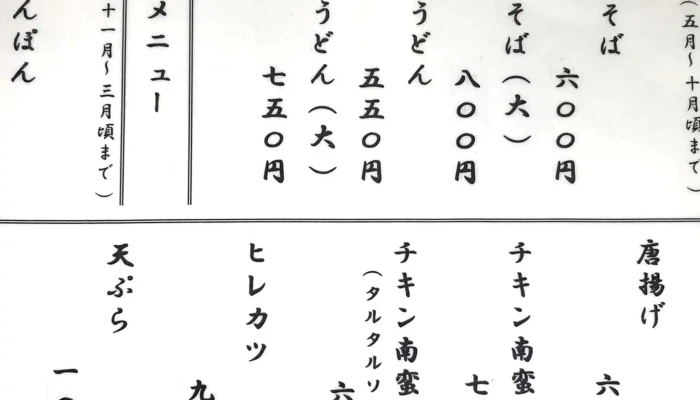 （五月～十月頃まで）
そば
六〇〇円
そば（大）
八〇〇円
うどん
五五〇円
うどん（大）
七五〇円
メニュー
十一月～三月頃まで）
んぽん
唐揚げ
六
チキン南蛮
七
チキン南蛮
（タルタルソ
六
ヒレカツ
九
天ぷら
一〇